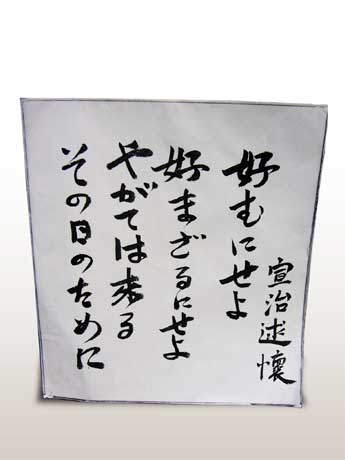 宣治述懐
好むにせよ
好まざるにせよ
やがては来る
その日のために